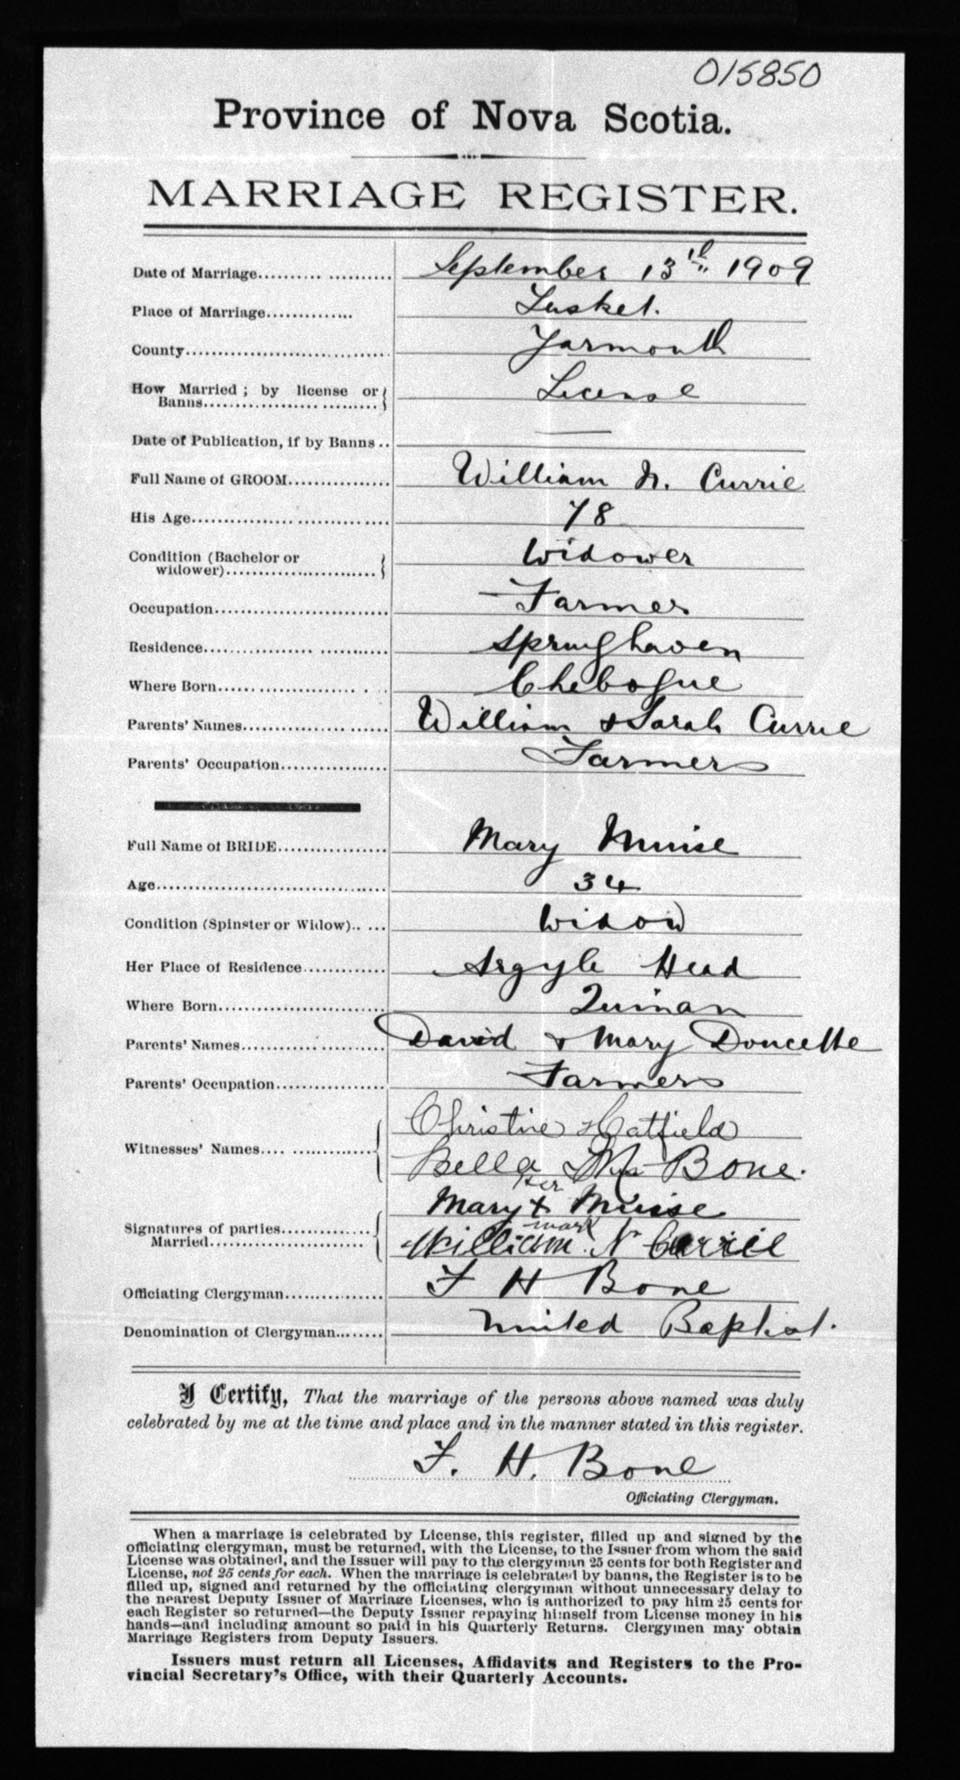 015850
Province of Nova Scotia.
MARRIAGE REGISTER.
Date of Marriage.......... ........... September 13th 1909
Place of Marriage.............. Tusket.
County.................................. Yarmouth
How Married ; by license or License
Banns...............................
Date of Publication, if by Banns .. —
Full Name of GROOM................. William N. Currie
His Age.................................. 78
Condition (Bachelor or Widower
widower)..........................
Occupation............................. Farmer
Residence................ ........... Springhaven
Where Born...... ............ . . Chebogue
Parents' Names........................ William & Sarah Currie
Parents' Occupation.................. Farmers
Full Name of BRIDE.................. Mary Muise
Age....................................... 34
Condition (Spinster or Widow).. ... Widow
Her Place of Residence.............. Argyle Head
Where Born............................. Quinan
Parents' Names........................ David & Mary Doucette
Parents' Occupation.................. Farmers
Christine Hatfield
Witnesses' Names.... .............
Bella Bone.
her
Mary X Muise
Signatures of parties............. mark
Married........................... William N Currie
Officiating Clergyman................ F H Bone
Denomination of Clergyman......... United Baptist.
I Certify, That the marriage of the persons above named was duly
celebrated by me at the time and place and in the manner stated in this register.
F. H. Bone
Officiating Clergyman.
When a marriage is celebrated by License, this register, filled up and signed by the
officiating clergyman, must be returned, with the License, to the Issuer from whom the said
License was obtained, and the Issuer will pay to the clergyman 25 cents for both Register and
License, not 25 cents for each. When the marriage is celebrated by banns, the Register is to be
filled up, signed and returned by the officiating clergyman without unnecessary delay to
the nearest Deputy Issuer of Marriage Licenses, who is authorized to pay him 25 cents for
each Register so returned—the Deputy Issuer repaying himself from License money in his
hands—and including amount so paid in his Quarterly Returns. Clergymen may obtain
Marriage Registers from Deputy Issuers.
Issuers must return all Licenses, Affidavits and Registers to the Pro-
vincial Secretary's Office, with their Quarterly Accounts.